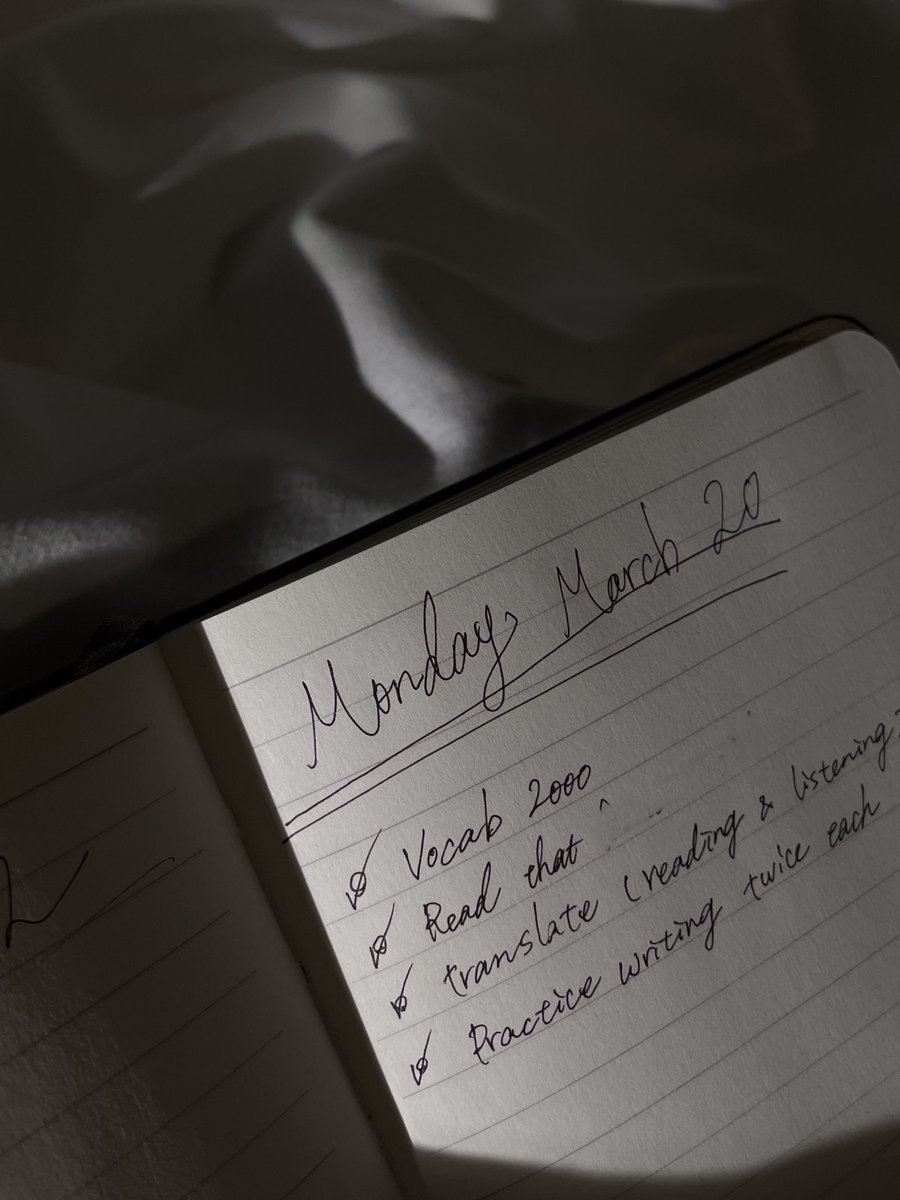 Monday, March 20
Vocab 2000
Read that
translate (reading & listening)
Practice writing twice each